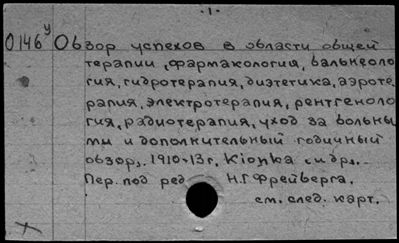 ·1·
0146у Обзор успехов в области общей
терапии, фармакология, бальнеоло
гия, гидротерапия, диэтетика, аэроте
рапия, электротерапия, рентгеноло
гия, радиотерапия, уход за больны
ми и дополнительный годичный
обзор,. 1910-13г. Kionka и др..
Пер. под ред Н.Г. Фрейберга.
см. след. карт.